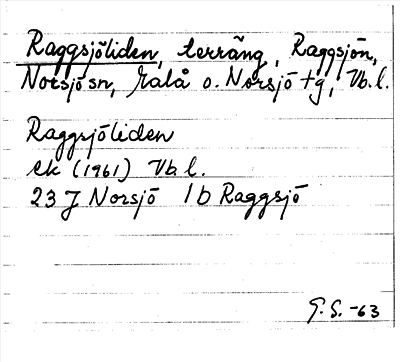 Raggsjöliden, terräng, Raggsjön,
Norsjö sn, Malå o. Norsjö tg, Vb.l.
Raggsjöliden
ek (1961) Vb.l.
23 J Norsjö 1 b Raggsjö
G.S.-63